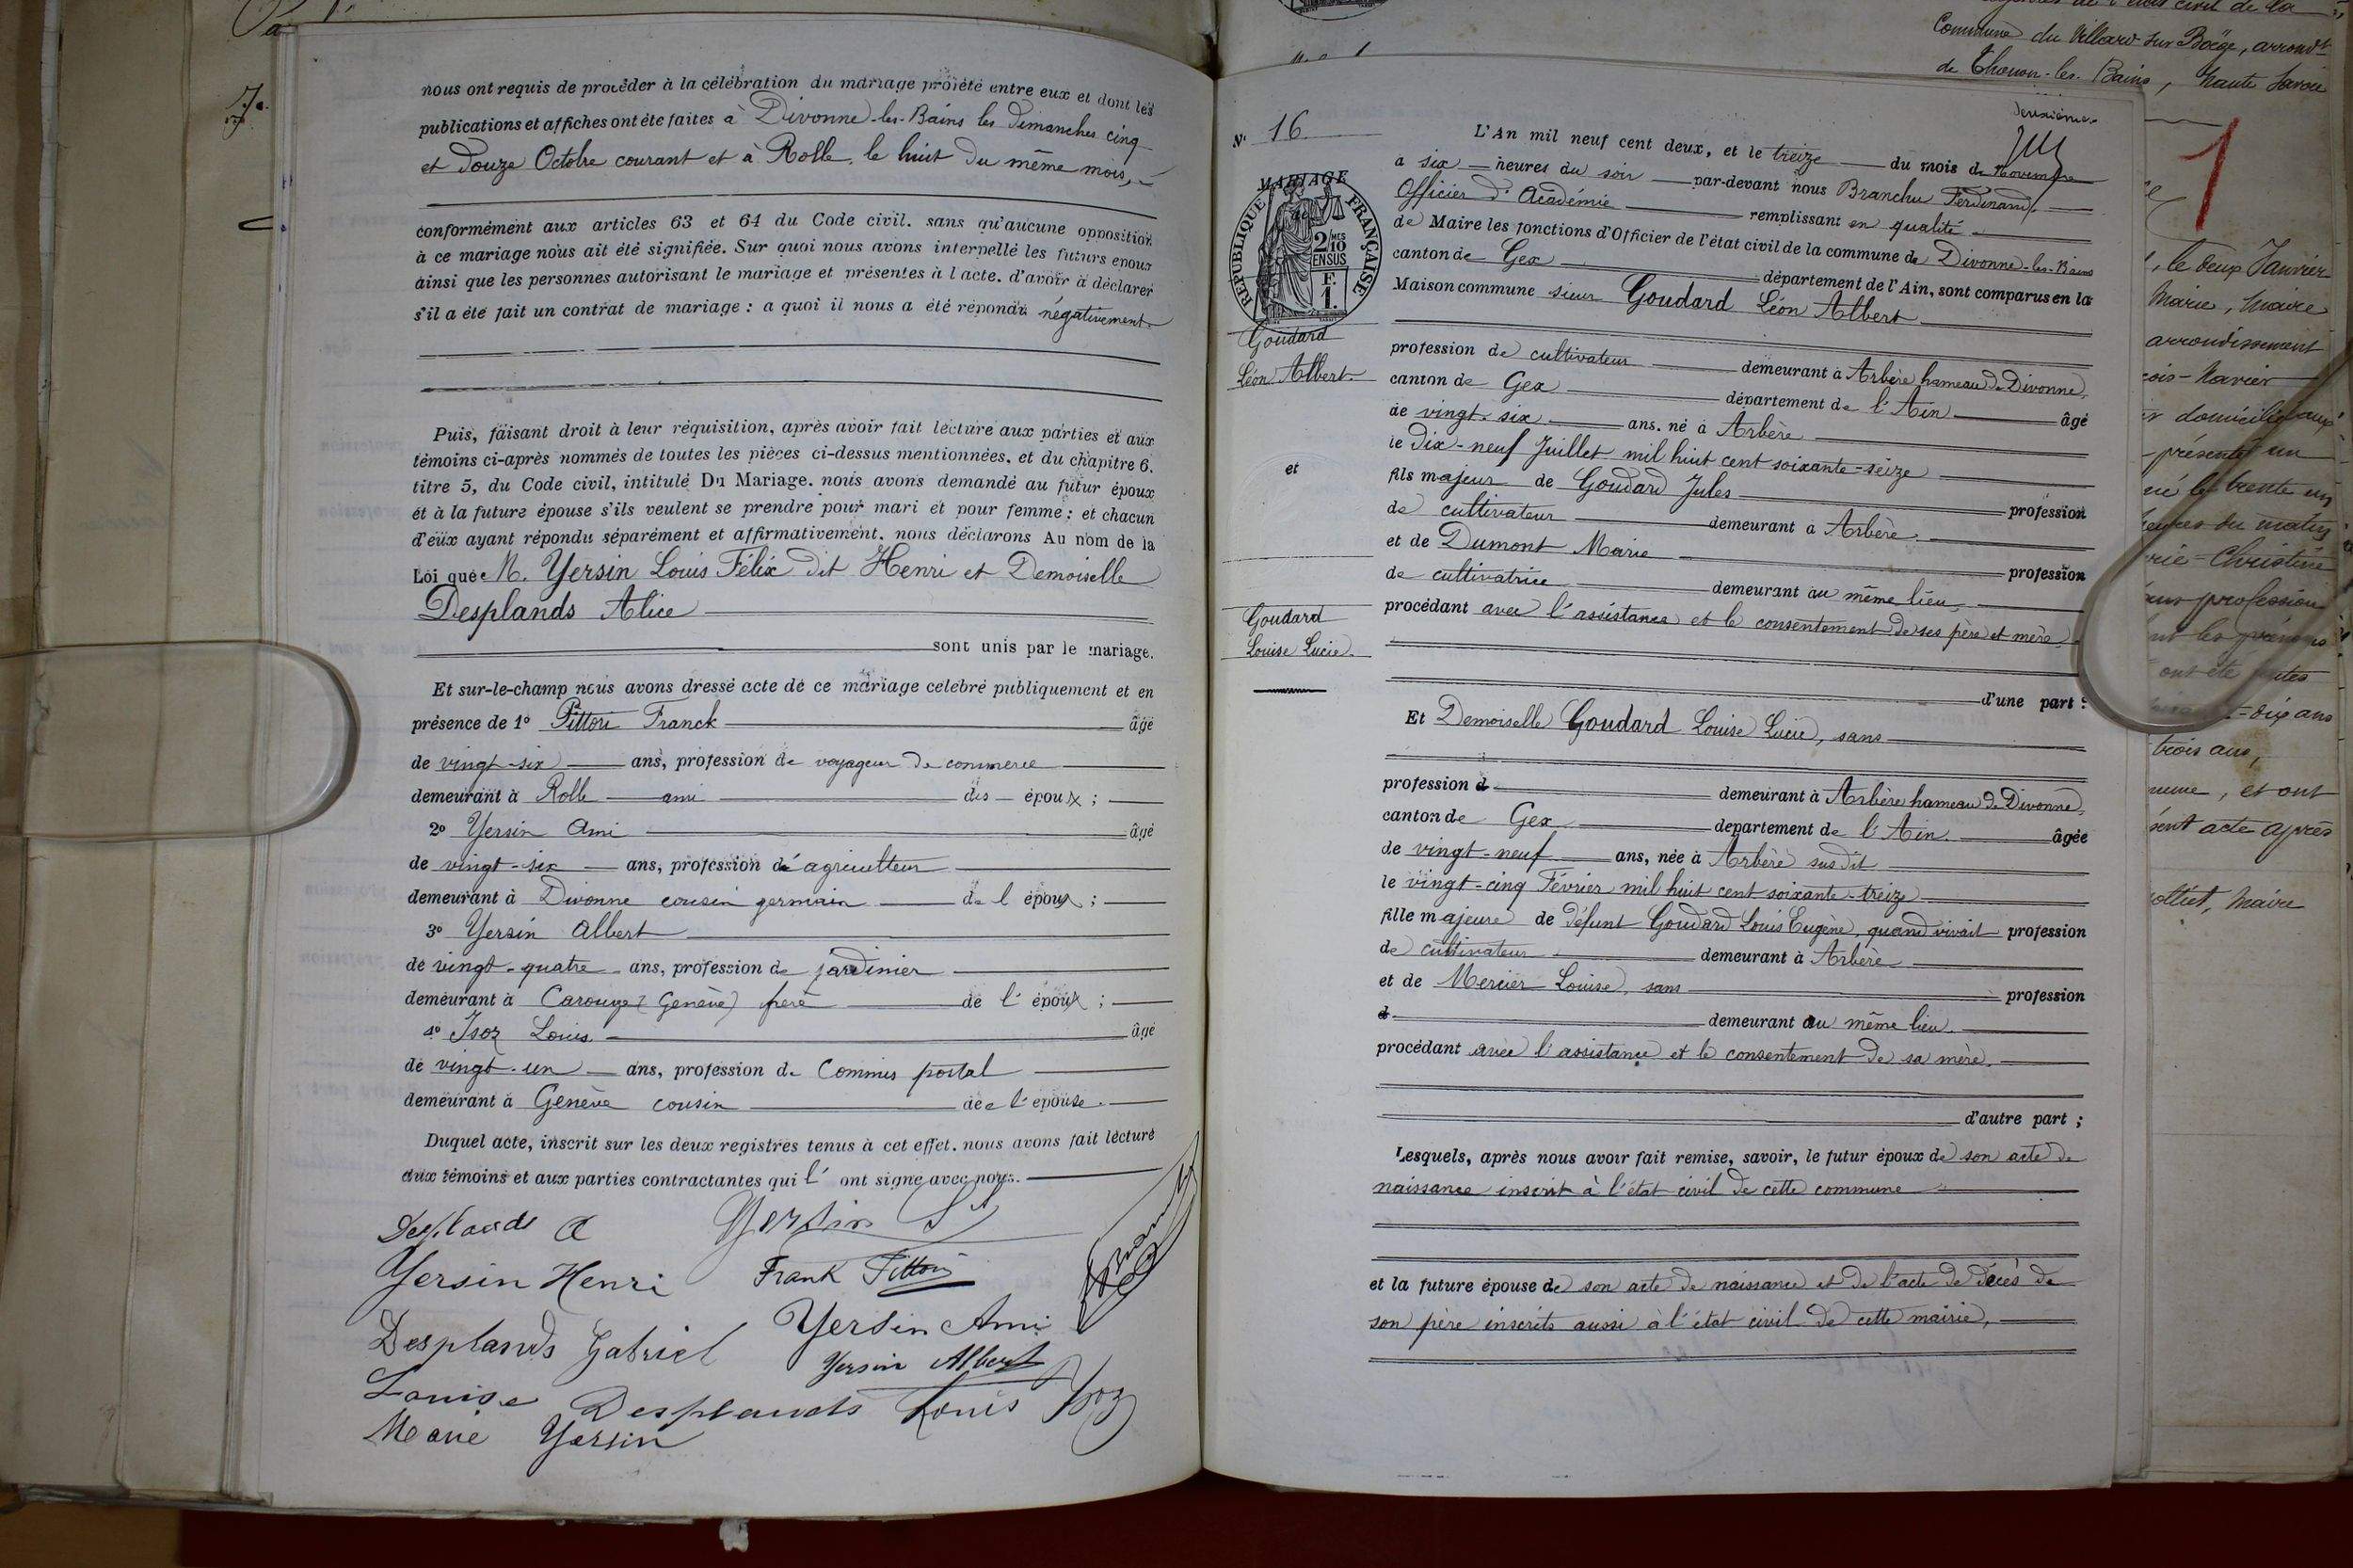 nous ont requis de procéder à la célébration du mariage projeté entre eux et dont les
publications et affiches ont été faites à Divonne-les-Bains les dimanches cinq
et douze Octobre courant et à Rolle, le huit du même mois,
conformément aux articles 63 et 64 du Code civil. sans qu'aucune opposition
à ce mariage nous ait été signifiée. Sur quoi nous avons interpellé les futurs epoux
ainsi que les personnes autorisant le mariage et présentes à l'acte. d'avoir à déclarer
s'il a été fait un contrat de mariage : a quoi il nous a été répondu négativement.
Puis, faisant droit à leur réquisition, après avoir fait lecture aux parties et aux
témoins ci-après nommés de toutes les pièces ci-dessus mentionnées, et du chapitre 6.
titre 5, du Code civil, intitulé Du Mariage. nous avons demandé au futur époux
et à la future épouse s'ils veulent se prendre pour mari et pour femme ; et chacun
d'eux ayant répondu séparément et affirmativement. nous déclarons Au nom de la
Loi que M. Yersin Louis Félix dit Henri et Demoiselle
Desplands Alice
sont unis par le mariage.
Et sur-le-champ nous avons dressé acte de ce mariage celebré publiquement et en
présence de 1° Pittori Franck âgé
de vingt-six ans, profession de voyageur de commerce
demeurant à Rolle ami des époux ;
2° Yersin Ami âgé
de vingt-six ans, profession d'agriculteur
demeurant à Divonne cousin germain de l époux ;
3° Yersin Albert
de vingt-quatre ans, profession de jardinier
demeurant à Carouge (Genève) frère de l'époux ;
4° Isoz Louis âgé
de vingt-un ans, profession de Commis postal
demeurant à Genève cousin de l'épouse.
Duquel acte, inscrit sur les deux registres tenus à cet effet. nous avons fait lecture
aux témoins et aux parties contractantes qui l' ont signé avec nous.
Desplands A Yersin
Yersin Henri Frank Pittori
Desplands Gabriel Yersin Ami
Yersin Albert
Louise Desplands Louis Isoz
Marie Yersin
N° 16
MARIAGE
RÉPUBLIQUE FRANÇAISE
2/10 MES
EN SUS
F.
1.
Goudard
Léon Albert.
et
Goudard
Louise Lucie.
deuxième
L'An mil neuf cent deux, et le treize du mois de Novembre
a six heures du soir par-devant nous Branchu Ferdinand,
Officier d'Académie remplissant en qualité
de Maire les fonctions d'Officier de l'état civil de la commune de Divonne-les-Bains
canton de Gex département de l'Ain, sont comparus en la
Maison commune sieur Goudard Léon Albert
profession de cultivateur demeurant à Arbère hameau de Divonne,
canton de Gex département de l'Ain âgé
de vingt-six ans. né à Arbère
le dix-neuf Juillet mil huit cent soixante-seize
fils majeur de Goudard Jules profession
de cultivateur demeurant à Arbère.
et de Dumont Marie profession
de cultivatrice demeurant au même lieu,
procédant avec l'assistance et le consentement de ses père et mère.
d'une part :
Et Demoiselle Goudard Louise Lucie, sans
profession d demeurant à Arbère hameau de Divonne,
canton de Gex departement de l'Ain. âgée
de vingt-neuf ans, née à Arbère sus dit
le vingt-cinq Février mil huit cent soixante-treize
fille majeure de défunt Goudard Louis Eugène, quand vivait profession
de cultivateur demeurant à Arbère
et de Mercier Louise, sans profession
d demeurant au même lieu.
procédant avec l'assistance et le consentement de sa mère.
d'autre part ;
Lesquels, après nous avoir fait remise, savoir, le futur époux de son acte de
naissance inscrit à l'état civil de cette commune
et la future épouse de son acte de naissance et de l'acte de décès de
son père inscrits aussi à l'état civil de cette mairie,
Commune du Villard sur Boëge, arrondt
de Thonon-les-Bains, Haute Savoie
1
, le deux Janvier
Marie, Maire
arrondissement
domicilié aux
présenté un
né le trente un
heures du matin
Christine
profession
ont été faites
dix ans
trois ans,
, et ont
acte après
, Maire